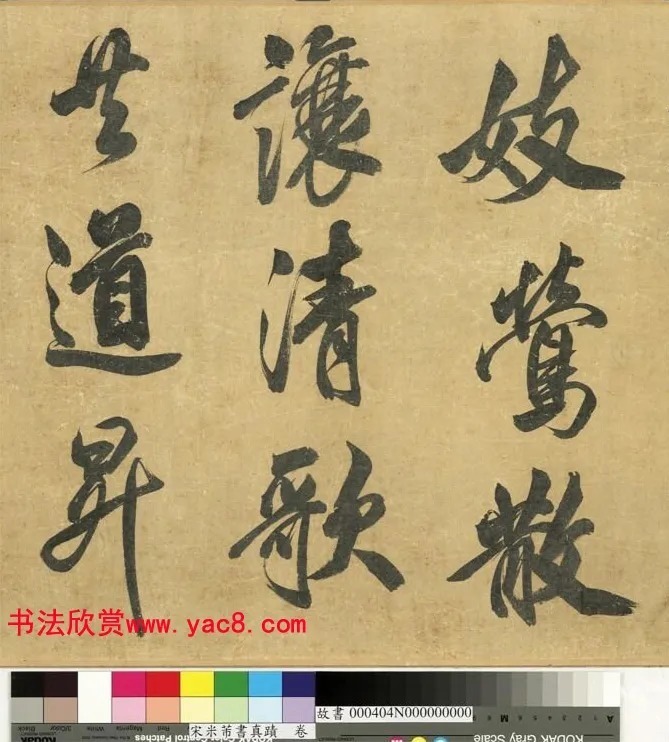 妓鶯散
讓清歌
共道昇
书法欣赏www.yac8.com
故書 000404N000000000
宋米芾書真蹟 卷
KODAK Gray Scale
Black 3/Color White Magenta Red